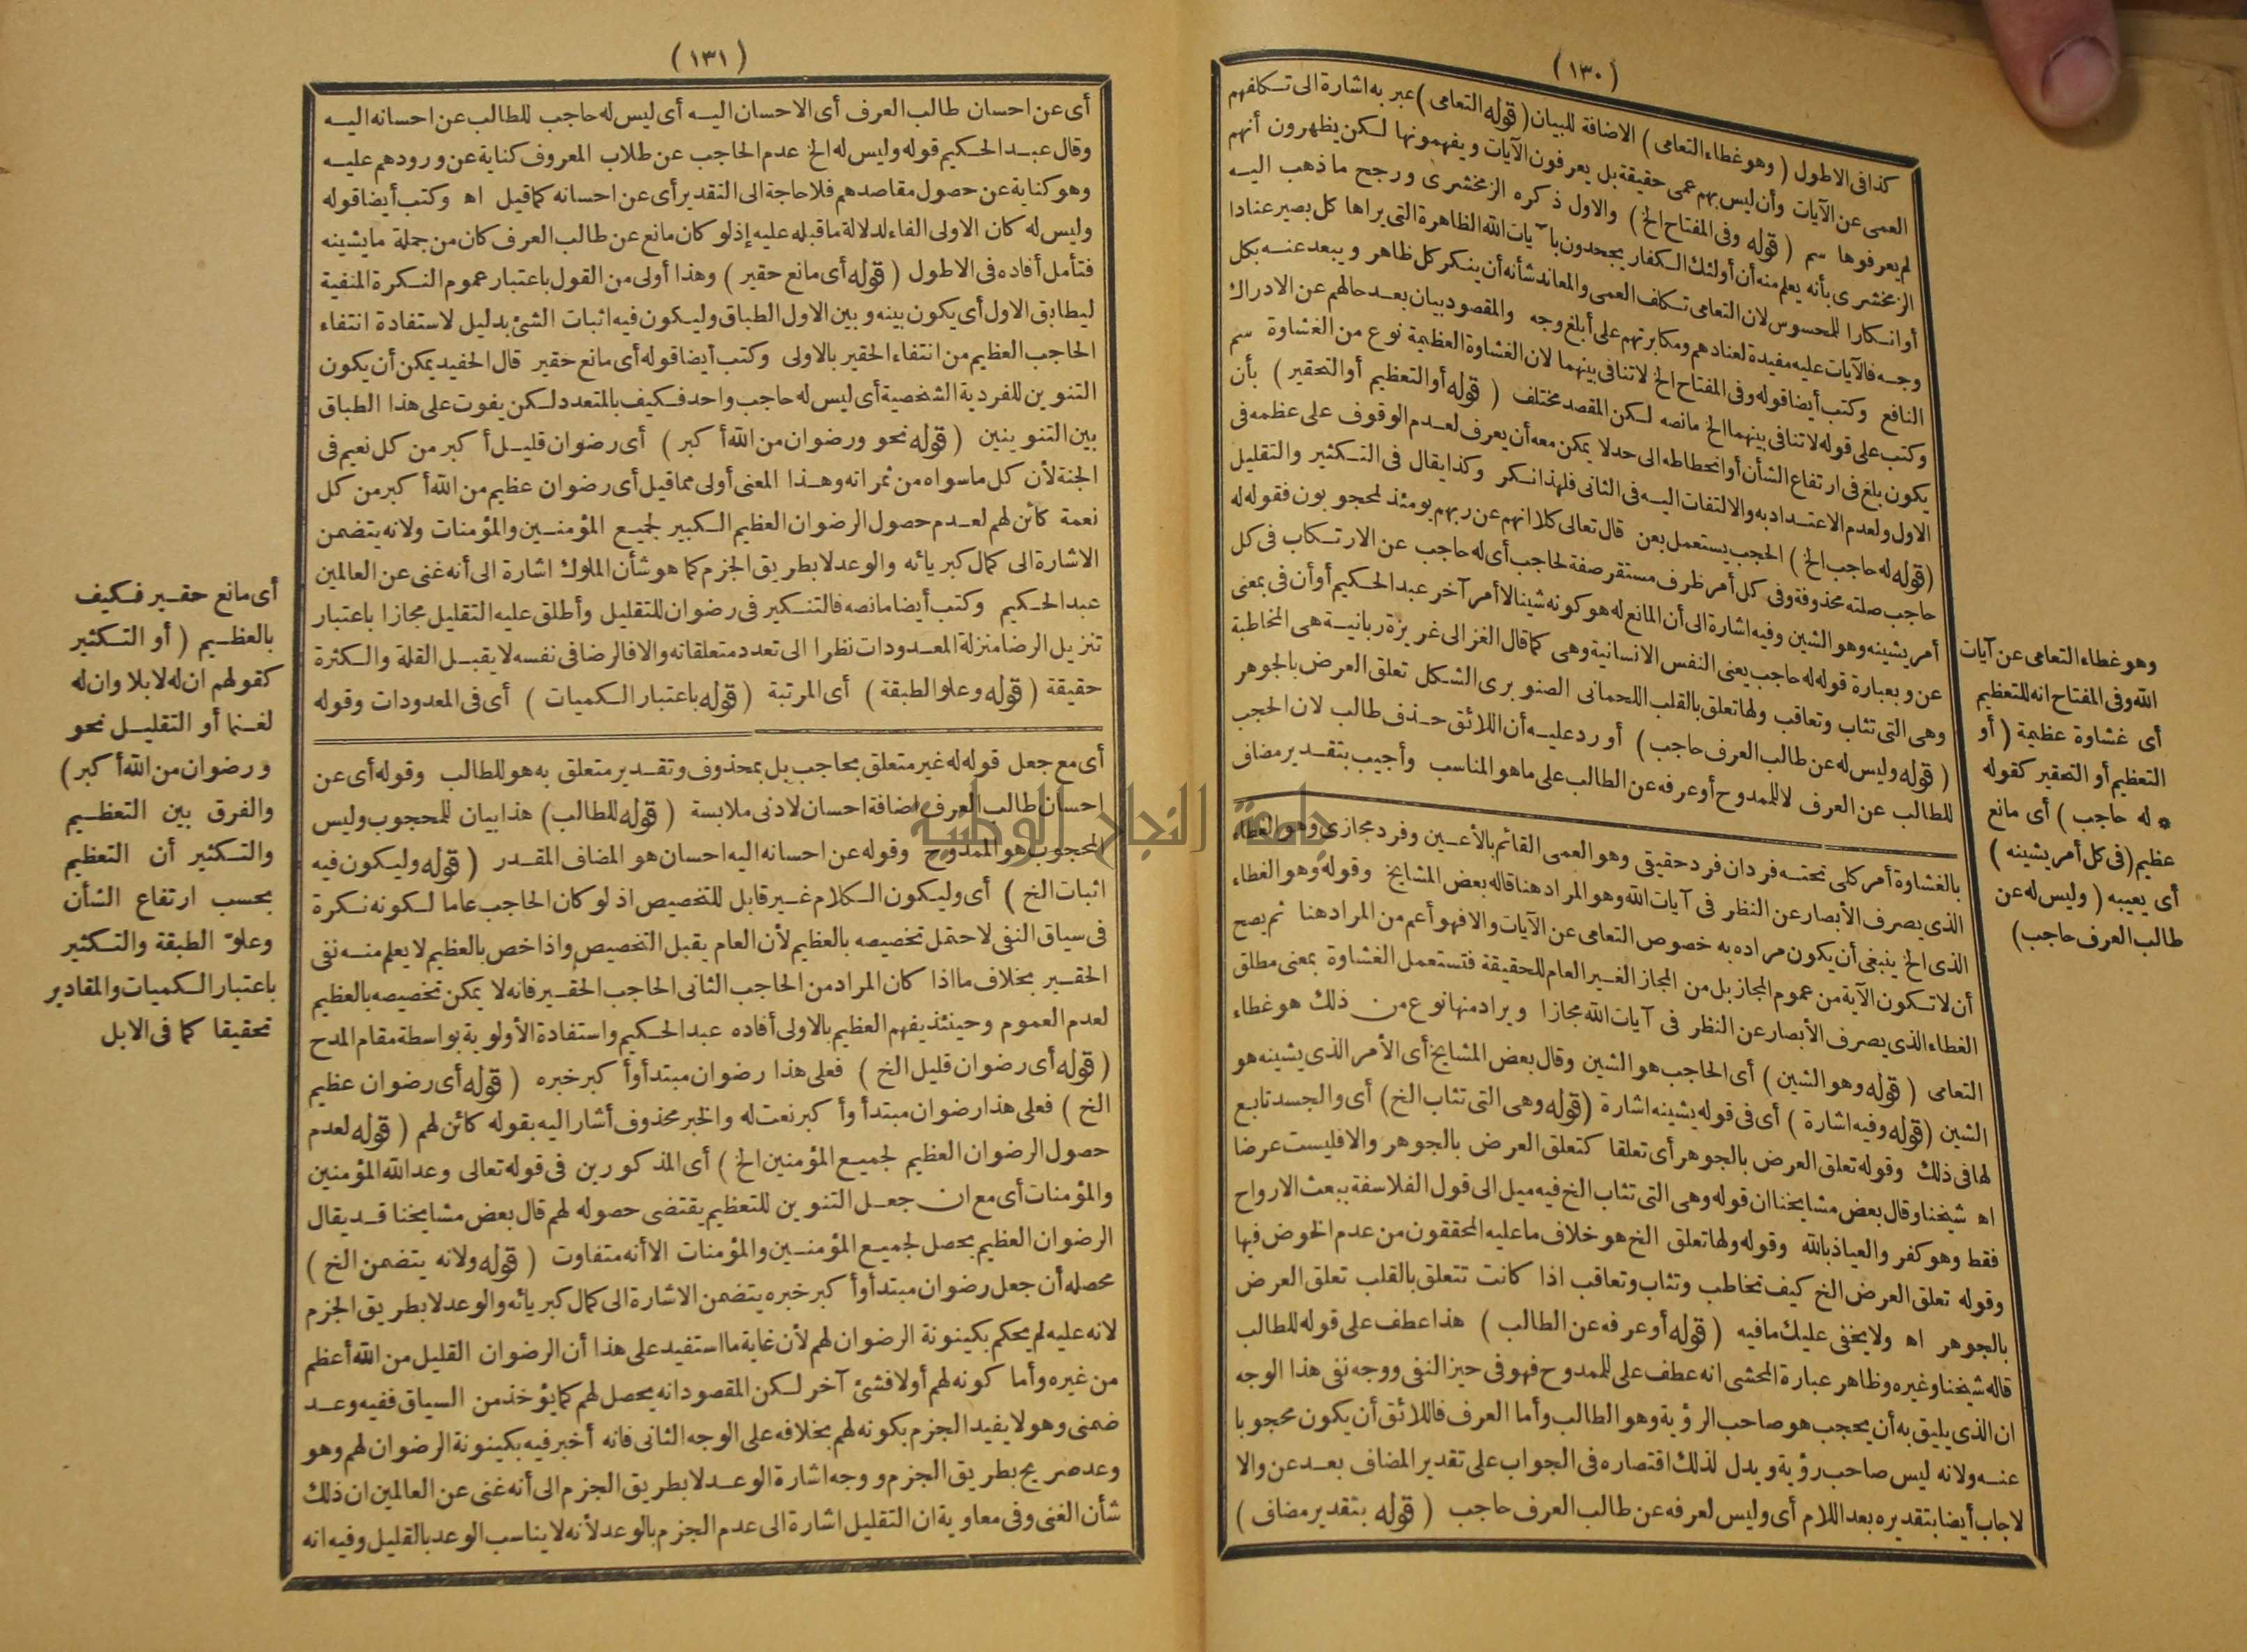 (١٣٠)
كذا فى الاطول ( وهو غطاء التعامى ) الاضافة للبيان ( قوله التعامى ) عبر به اشارة الى تكلفهم
العمى عن الآيات وأن ليس بهم عمى حقيقة بل يعرفون الآيات ويفهمونها لكن يظهرون أنهم
لم يعرفوها سم ( قوله وفى المفتاح الخ ) والاول ذكره الزمخشرى ورجح ما ذهب اليه
الزمخشرى بأنه يعلم منه أن أولئك الكفار يجحدون بآيات الله الظاهرة التى يراها كل بصير عنادا
أو انكارا للمحسوس لان التعامى تكلف العمى والمعاند شأنه أن ينكر كل ظاهر ويبعد عنه بكل
وجه فالآيات عليه مفيدة لعنادهم ومكابرتهم على أبلغ وجه والمقصود بيان بعد حالهم عن الادراك
النافع وكتب أيضا قوله وفى المفتاح الخ لا تنافى بينهما لان الغشاوة العظيمة نوع من الغشاوة سم
وكتب على قوله لا تنافى بينهما الخ مانصه لكن المقصد مختلف ( قوله أو التعظيم أو التحقير ) بأن
يكون بلغ فى ارتفاع الشأن أو انحطاطه الى حد لا يمكن معه أن يعرف لعدم الوقوف على عظمه فى
الاول ولعدم الاعتداد به والالتفات اليه فى الثانى فلهذا نكر وكذا يقال فى التكثير والتقليل
( قوله له حاجب الخ ) الحجب يستعمل بعن قال تعالى كلا انهم عن ربهم يومئذ لمحجوبون فقوله له
حاجب صلته محذوفة وفى كل أمر ظرف مستقر صفة لحاجب أى له حاجب عن الارتكاب فى كل
أمر يشينه وهو الشين وفيه اشارة الى أن المانع له هو كونه شينا لا أمر آخر عبد الحكيم أو أن فى بمعنى
عن وبعبارة قوله له حاجب يعنى النفس الانسانية وهى كما قال الغزالى غريزة ربانية هى المخاطبة
وهى التى تثاب وتعاقب ولها تعلق بالقلب اللحمانى الصنوبرى الشكل تعلق العرض بالجوهر
( قوله وليس له عن طالب العرف حاجب ) أورد عليه أن اللائق حذف طالب لان الحجب
للطالب عن العرف لا للممدوح أو عرفه عن الطالب على ما هو المناسب وأجيب بتقدير مضاف
بالغشاوة أمر كلى تحته فردان فرد حقيقى وهو العمى القائم بالأعين وفرد مجازى وهو الغطاء
الذى يصرف الأبصار عن النظر فى آيات الله وهو المراد هنا قاله بعض المشايخ وقوله وهو الغطاء
الذى الخ ينبغى أن يكون مراده به خصوص التعامى عن الآيات والا فهو أعم من المراد هنا ثم يصح
أن لا تكون الآية من عموم المجاز بل من المجاز الغير العام للحقيقة فتستعمل الغشاوة بمعنى مطلق
الغطاء الذى يصرف الأبصار عن النظر فى آيات الله مجازا ويراد منها نوع من ذلك هو غطاء
التعامى ( قوله وهو الشين ) أى الحاجب هو الشين وقال بعض المشايخ أى الأمر الذى يشينه هو
الشين ( قوله وفيه اشارة ) أى فى قوله يشينه اشارة ( قوله وهى التى تثاب الخ ) أى والجسد تابع
لها فى ذلك وقوله تعلق العرض بالجوهر أى تعلقا كتعلق العرض بالجوهر والا فليست عرضا
اه شيخنا وقال بعض مشايخنا ان قوله وهى التى تثاب الخ فيه ميل الى قول الفلاسفة ببعث الارواح
فقط وهو كفر والعياذ بالله وقوله ولها تعلق الخ هو خلاف ما عليه المحققون من عدم الخوض فيها
وقوله تعلق العرض الخ كيف تخاطب وتثاب وتعاقب اذا كانت تتعلق بالقلب تعلق العرض
بالجوهر اه ولا يخفى عليك ما فيه ( قوله أو عرفه عن الطالب ) هذا عطف على قوله للطالب
قاله شيخنا وغيره وظاهر عبارة المحشى انه عطف على للممدوح فهو فى حيز النفى ووجه نفى هذا الوجه
ان الذى يليق به أن يحجب هو صاحب الرؤية وهو الطالب وأما العرف فاللائق أن يكون محجوبا
عنه ولانه ليس صاحب رؤية ويدل لذلك اقتصاره فى الجواب على تقدير المضاف بعد عن والا
لاجاب أيضا بتقديره بعد اللام أى وليس لعرفه عن طالب العرف حاجب ( قوله بتقدير مضاف )
وهو غطاء التعامى عن آيات
الله وفى المفتاح انه للتعظيم
أى غشاوة عظيمة ( أو
التعظيم أو التحقير كقوله
* له حاجب ) أى مانع
عظيم ( فى كل أمر يشينه )
أى يعيبه ( وليس له عن
طالب العرف حاجب )
(١٣١)
أى عن احسان طالب العرف أى الاحسان اليه أى ليس له حاجب للطالب عن احسانه اليه
وقال عبد الحكيم قوله وليس له الخ عدم الحاجب عن طلاب المعروف كناية عن ورودهم عليه
وهو كناية عن حصول مقاصدهم فلا حاجة الى التقدير أى عن احسانه كما قيل اه وكتب أيضا قوله
وليس له كان الاولى الفاء لدلالة ما قبله عليه إذ لو كان مانع عن طالب العرف كان من جملة ما يشينه
فتأمل أفاده فى الاطول ( قوله أى مانع حقير ) وهذا أولى من القول باعتبار عموم النكرة المنفية
ليطابق الاول أى يكون بينه وبين الاول الطباق وليكون فيه اثبات الشئ بدليل لاستفادة انتفاء
الحاجب العظيم من انتفاء الحقير بالاولى وكتب أيضا قوله أى مانع حقير قال الحفيد يمكن أن يكون
التنوين للفردية الشخصية أى ليس له حاجب واحد فكيف بالمتعدد لكن يفوت على هذا الطباق
بين التنوينين ( قوله نحو ورضوان من الله أكبر ) أى رضوان قليل أكبر من كل نعيم فى
الجنة لأن كل ما سواه من ثمراته وهذا المعنى أولى مما قيل أى رضوان عظيم من الله أكبر من كل
نعمة كائن لهم لعدم حصول الرضوان العظيم الكبير لجميع المؤمنين والمؤمنات ولانه يتضمن
الاشارة الى كمال كبريائه والوعد لا بطريق الجزم كما هو شأن الملوك اشارة الى أنه غنى عن العالمين
عبد الحكيم وكتب أيضا مانصه فالتنكير فى رضوان للتقليل وأطلق عليه التقليل مجازا باعتبار
تنزيل الرضا منزلة المعدودات نظرا الى تعدد متعلقاته والا فالرضا فى نفسه لا يقبل القلة والكثرة
حقيقة ( قوله وعلو الطبقة ) أى المرتبة ( قوله باعتبار الكميات ) أى فى المعدودات وقوله
أى مع جعل قوله له غير متعلق بحاجب بل بمحذوف وتقدير متعلق به هو للطالب وقوله أى عن
احسان طالب العرف اضافة احسان لادنى ملابسة ( قوله للطالب ) هذا بيان للمحجوب وليس
المحجوب هو الممدوح وقوله عن احسانه اليه احسان هو المضاف المقدر ( قوله وليكون فيه
اثبات الخ ) أى وليكون الكلام غير قابل للتخصيص اذ لو كان الحاجب عاما لكونه نكرة
فى سياق النفى لاحتمل تخصيصه بالعظيم لأن العام يقبل التخصيص واذا خص بالعظيم لا يعلم منه نفى
الحقير بخلاف ما اذا كان المراد من الحاجب الثانى الحاجب الحقير فانه لا يمكن تخصيصه بالعظيم
لعدم العموم وحينئذ يفهم العظيم بالاولى أفاده عبد الحكيم واستفادة الأولوية بواسطة مقام المدح
( قوله أى رضوان قليل الخ ) فعلى هذا رضوان مبتدأ وأكبر خبره ( قوله أى رضوان عظيم
الخ ) فعلى هذا رضوان مبتدأ وأكبر نعت له والخبر محذوف أشار اليه بقوله كائن لهم ( قوله لعدم
حصول الرضوان العظيم لجميع المؤمنين الخ ) أى المذكورين فى قوله تعالى وعد الله المؤمنين
والمؤمنات أى مع ان جعل التنوين للتعظيم يقتضى حصوله لهم قال بعض مشايخنا قد يقال
الرضوان العظيم يحصل لجميع المؤمنين والمؤمنات الا أنه متفاوت ( قوله ولانه يتضمن الخ )
محصله أن جعل رضوان مبتدأ وأكبر خبره يتضمن الاشارة الى كمال كبريائه والوعد لا بطريق الجزم
لانه عليه لم يحكم بكينونة الرضوان لهم لأن غاية ما استفيد على هذا أن الرضوان القليل من الله أعظم
من غيره وأما كونه لهم أو لا فشئ آخر لكن المقصود انه يحصل لهم كما يؤخذ من السياق ففيه وعد
ضمنى وهو لا يفيد الجزم بكونه لهم بخلافه على الوجه الثانى فانه أخبر فيه بكينونة الرضوان لهم وهو
وعد صريح بطريق الجزم ووجه اشارة الوعد لا بطريق الجزم الى أنه غنى عن العالمين ان ذلك
شأن الغنى وفى معاوية ان التقليل اشارة الى عدم الجزم بالوعد لأنه لا يناسب الوعد بالقليل وفيه انه
أى مانع حقير فكيف
بالعظيم ( أو التكثير
كقولهم ان له لابلا وان له
لغنما أو التقليل نحو
ورضوان من الله أكبر )
والفرق بين التعظيم
والتكثير أن التعظيم
بحسب ارتفاع الشأن
وعلو الطبقة والتكثير
باعتبار الكميات والمقادير
تحقيقا كما فى الابل
جامعة النجاح الوطنية